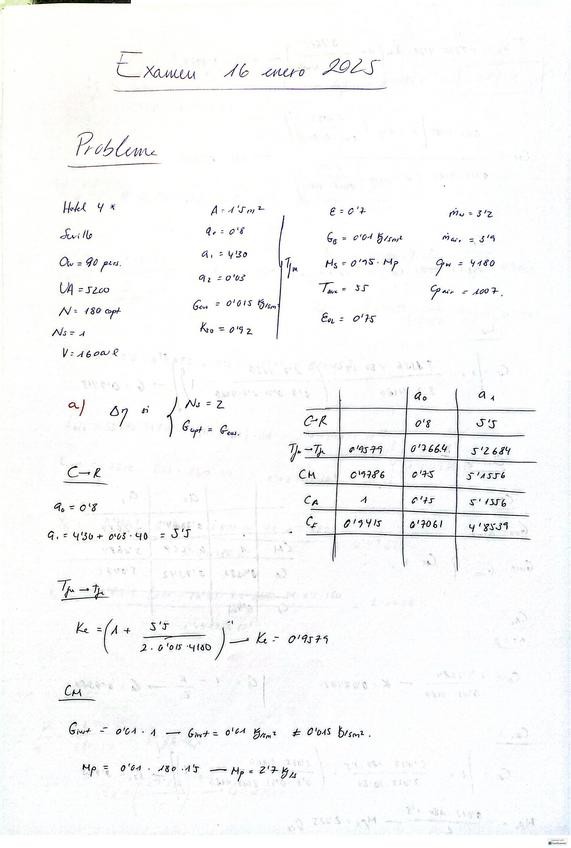 Examen 16 enero 2025
Problema
Hotel 4*
Sevilla
Ow = 90 pers.
UA = 5200
N = 180 capt
Ns = 1
V = 16000 l
A = 1'5 m²
a0 = 0'8
a1 = 4'30
a2 = 0'03
Gens = 0'015 kg/sm²
K50 = 0'92
Tfm
E = 0'7
GB = 0'01 kg/sm²
Ms = 0'95 · Mp
Tacc = 55
EOL = 0'75
ṁw = 3'2
ṁair = 3'9
Cpw = 4180
Cpair = 1007.
a) Δη si { Ns = 2
Gcapt = Gens.
a0 a1
C→R 0'8 5'5
Tfm→Tfe 0'9579 0'7664 5'2684
CM 0'9786 0'75 5'1556
CA 1 0'75 5'1556
CI 0'9415 0'7061 4'8539
C→R
a0 = 0'8
a1 = 4'30 + 0'03 · 40 = 5'5
Tfm→Tfe
Ke = (1 + 5'5 / 2 · 0'015 · 4180)⁻¹ → Ke = 0'9579
CM
Ginst = 0'01 · 1 — Ginst = 0'01 kg/sm² ≠ 0'015 kg/sm².
Mp = 0'01 · 180 · 1'5 — Mp = 2'7 kg/s